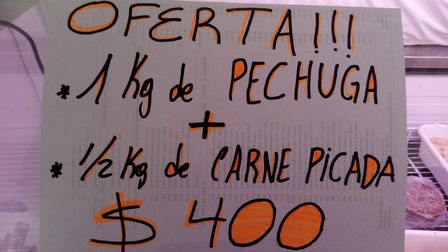 OFERTA!!!
* 1 Kg de PECHUGA
+
* 1/2 Kg de CARNE PICADA
$ 400